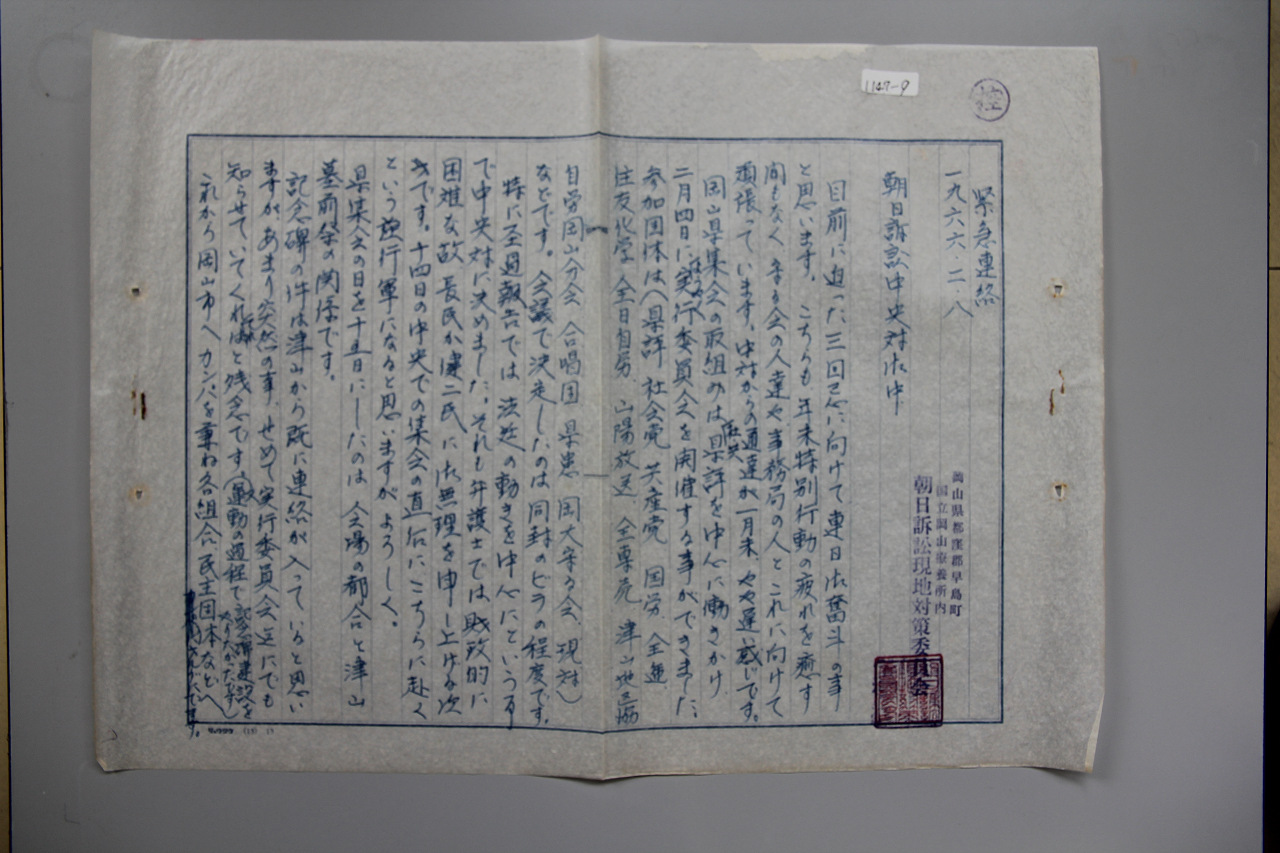 1147-9
緊急連絡
一九六六・二・八
岡山県都窪郡早島町
国立岡山療養所内
朝日訴訟現地対策委員会
朝日訴訟中央対御中
目前に迫った三回忌に向けて連日御奮斗の事
と思います。こちらも年末特別行動の疲れを癒す
間もなく 守る会の人達や、事務局の人とこれに向けて
頑張っています。中対からの通達が一月末、やや遅い感じです。
岡山県集会の取組みは県評を中心に働きかけ
二月四日に実行委員会を開催する事ができました、
参加団体は(県評 社会党 共産党 国労 全逓
住友化学 全日自労 山陽放送 全専売 津山地区労
自労岡山分会 合唱団 県患 岡大守る会、現対)
などです。会議で決定したのは同封のビラの程度です。
特に 報告では 法廷の動きを中心にという
で中央対に決めました。それも弁護士では財政的に
困難な故 長氏か健二氏に御無理を申し上げる次
㐧です。十四日の中央での集会の直后にこちらに赴く
という強行軍になると思いますが よろしく。
県集会の日を十五日にしたのは 会場の都合と津山
墓前祭の関係です。
記念碑の件は津山から既に連絡が入っていると思い
ますが、あまり突然の事、せめて実行委員会迄にでも
知らせていてくれればと残念です(運動の過程で記念碑建設を
やりたかったです)
これから岡山市へカンパを兼ね各組合、民主団体などへ